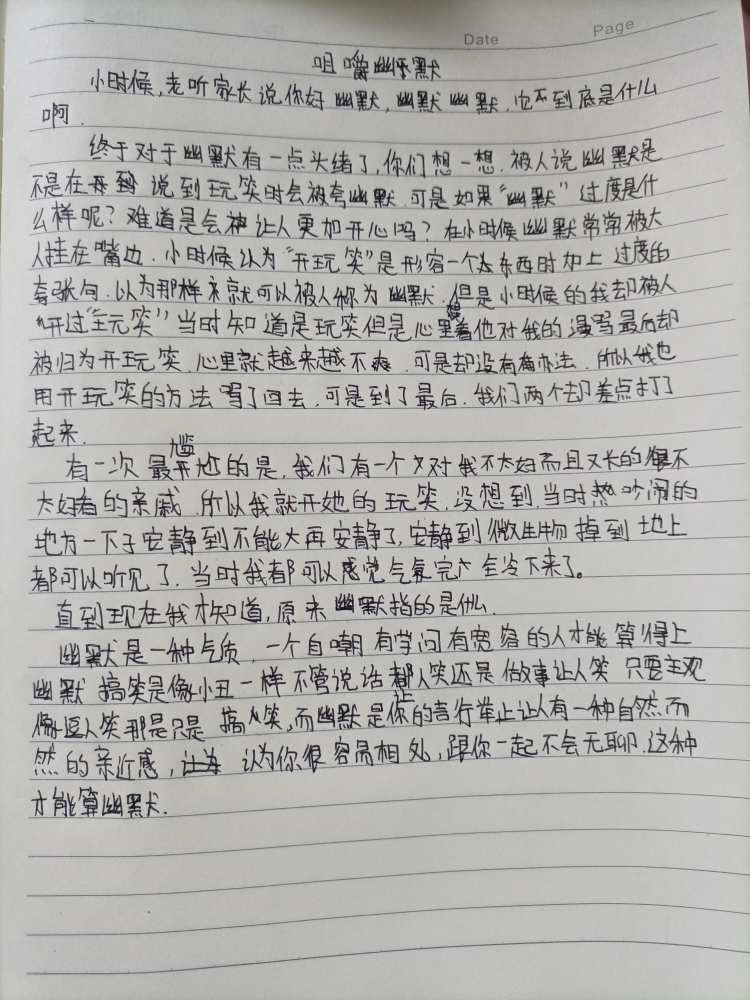 Date
Page
咀嚼幽默
小时候,老听家长说你好幽默,幽默幽默,它不到底是什么
啊.
终于对于幽默有一点头绪了,你们想一想.被人说幽默是
不是在 说到玩笑时会被夸幽默.可是如果“幽默”过度是什
么样呢?难道是会 让人更加开心吗?在小时候幽默常常被大
人挂在嘴边.小时候认为“开玩笑”是形容一个 东西时加上过度的
夸张句.以为那样 就可以被人称为幽默.但是小时候的我却被人
“开过“玩笑”当时知道是玩笑但是,心里想着他对我的漫骂最后却
被归为开玩笑.心里就越来越不爽.可是却没有 办法.所以我也
用开玩笑的方法骂了回去.可是到了最后.我们两个却差点打了
起来.
有一次最尴尬的是,我们有一个 对我不太好而且又长的很不
太好看的亲戚.所以我就开她的玩笑,没想到,当时热吵闹的
地方一下子安静到不能大再安静了,安静到微生物掉到地上
都可以听见了.当时我都可以感觉气氛完全冷下来了。
直到现在我才知道,原来幽默指的是什么.
幽默是一种气质.一个自嘲有学问有宽容的人才能算得上
幽默 搞笑是像小丑一样不管说话都人笑还是做事让人笑 只要主观
像逗人笑那是只是搞人笑,而幽默是你的言行举止让人有一种自然而
然的亲近感, 认为你很容易相处,跟你一起不会无聊.这种
才能算幽默.